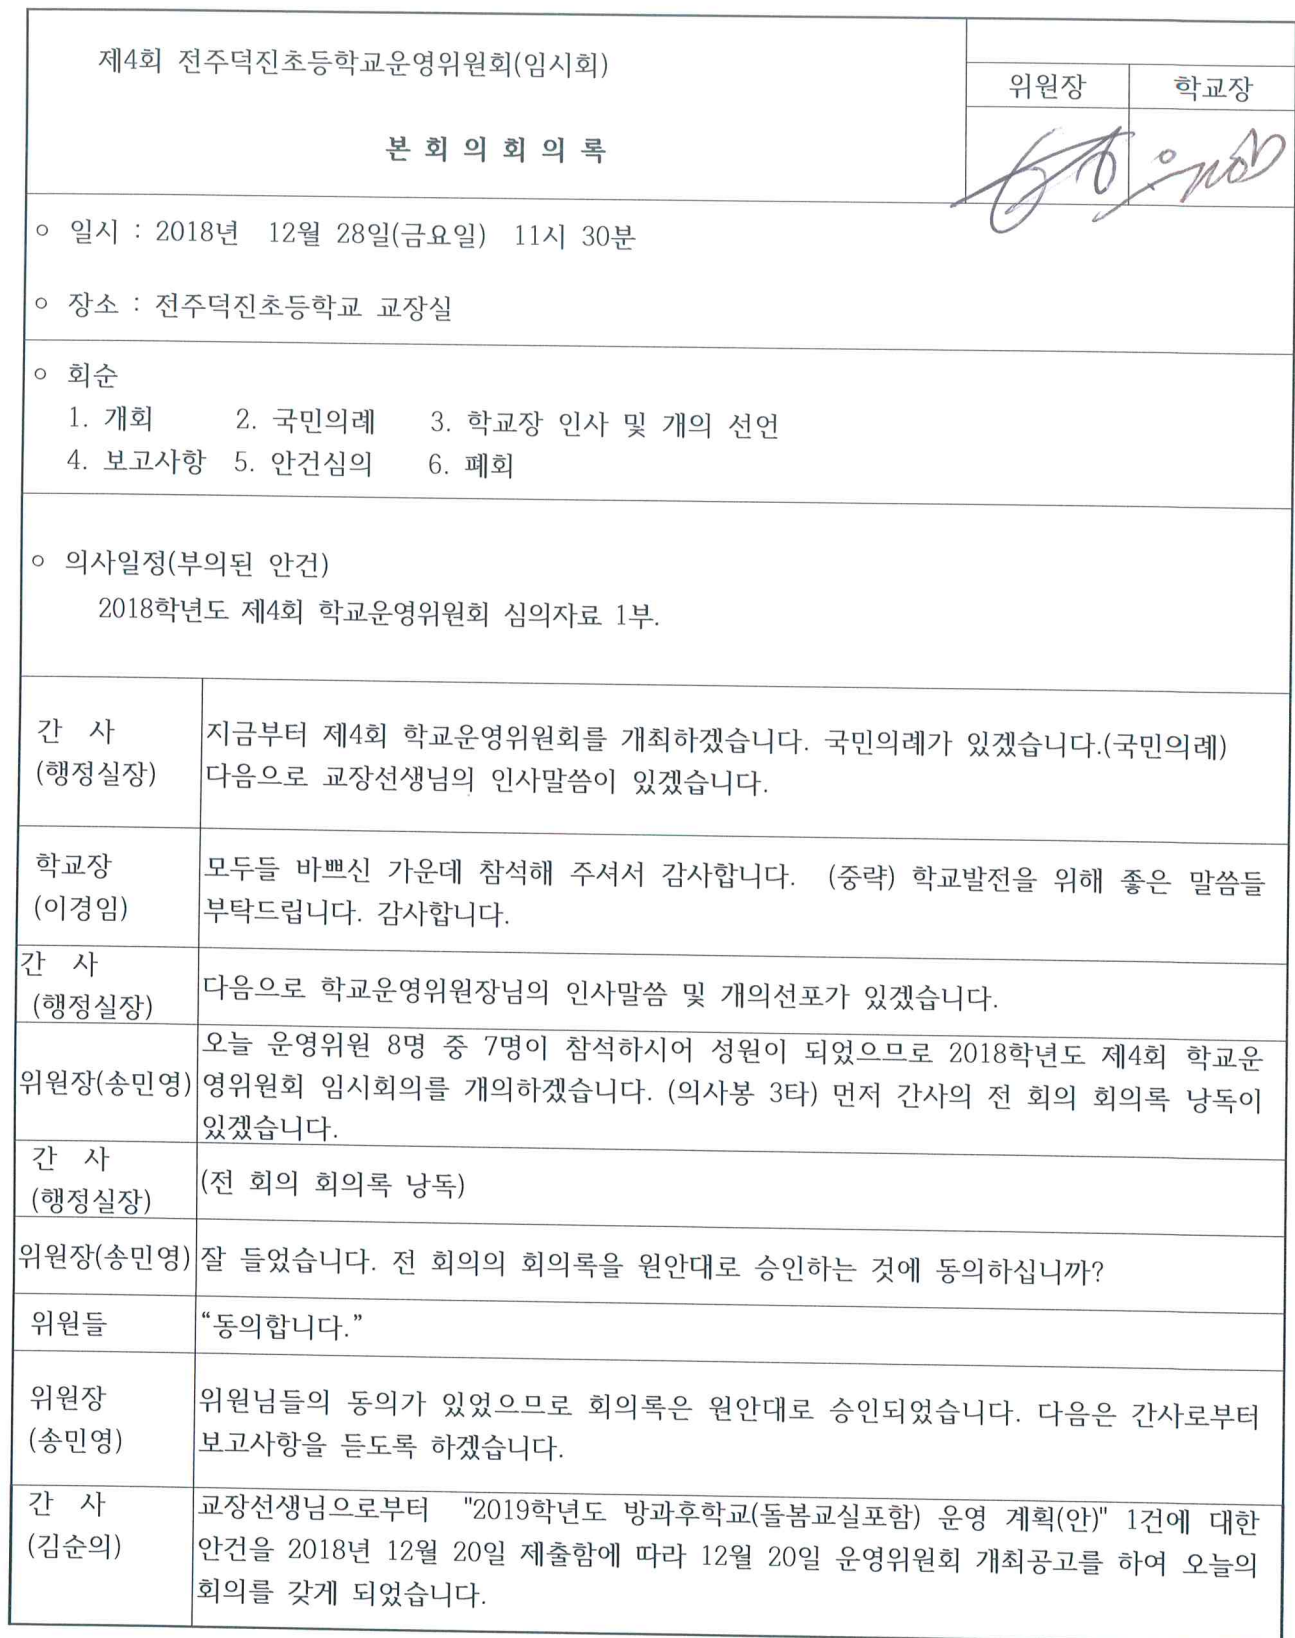 제4회 전주덕진초등학교운영위원회(임시회)
위원장 학교장
본 회 의 회 의 록
○ 일시 : 2018년 12월 28일(금요일) 11시 30분
○ 장소 : 전주덕진초등학교 교장실
○ 회순
1. 개회 2. 국민의례 3. 학교장 인사 및 개의 선언
4. 보고사항 5. 안건심의 6. 폐회
○ 의사일정(부의된 안건)
2018학년도 제4회 학교운영위원회 심의자료 1부.
간 사
(행정실장)
지금부터 제4회 학교운영위원회를 개최하겠습니다. 국민의례가 있겠습니다.(국민의례)
다음으로 교장선생님의 인사말씀이 있겠습니다.
학교장
(이경임)
모두들 바쁘신 가운데 참석해 주셔서 감사합니다. (중략) 학교발전을 위해 좋은 말씀들
부탁드립니다. 감사합니다.
간 사
(행정실장)
다음으로 학교운영위원장님의 인사말씀 및 개의선포가 있겠습니다.
위원장(송민영)
오늘 운영위원 8명 중 7명이 참석하시어 성원이 되었으므로 2018학년도 제4회 학교운
영위원회 임시회의를 개의하겠습니다. (의사봉 3타) 먼저 간사의 전 회의 회의록 낭독이
있겠습니다.
간 사
(행정실장)
(전 회의 회의록 낭독)
위원장(송민영)
잘 들었습니다. 전 회의의 회의록을 원안대로 승인하는 것에 동의하십니까?
위원들
“동의합니다.”
위원장
(송민영)
위원님들의 동의가 있었으므로 회의록은 원안대로 승인되었습니다. 다음은 간사로부터
보고사항을 듣도록 하겠습니다.
간 사
(김순의)
교장선생님으로부터 "2019학년도 방과후학교(돌봄교실포함) 운영 계획(안)" 1건에 대한
안건을 2018년 12월 20일 제출함에 따라 12월 20일 운영위원회 개최공고를 하여 오늘의
회의를 갖게 되었습니다.